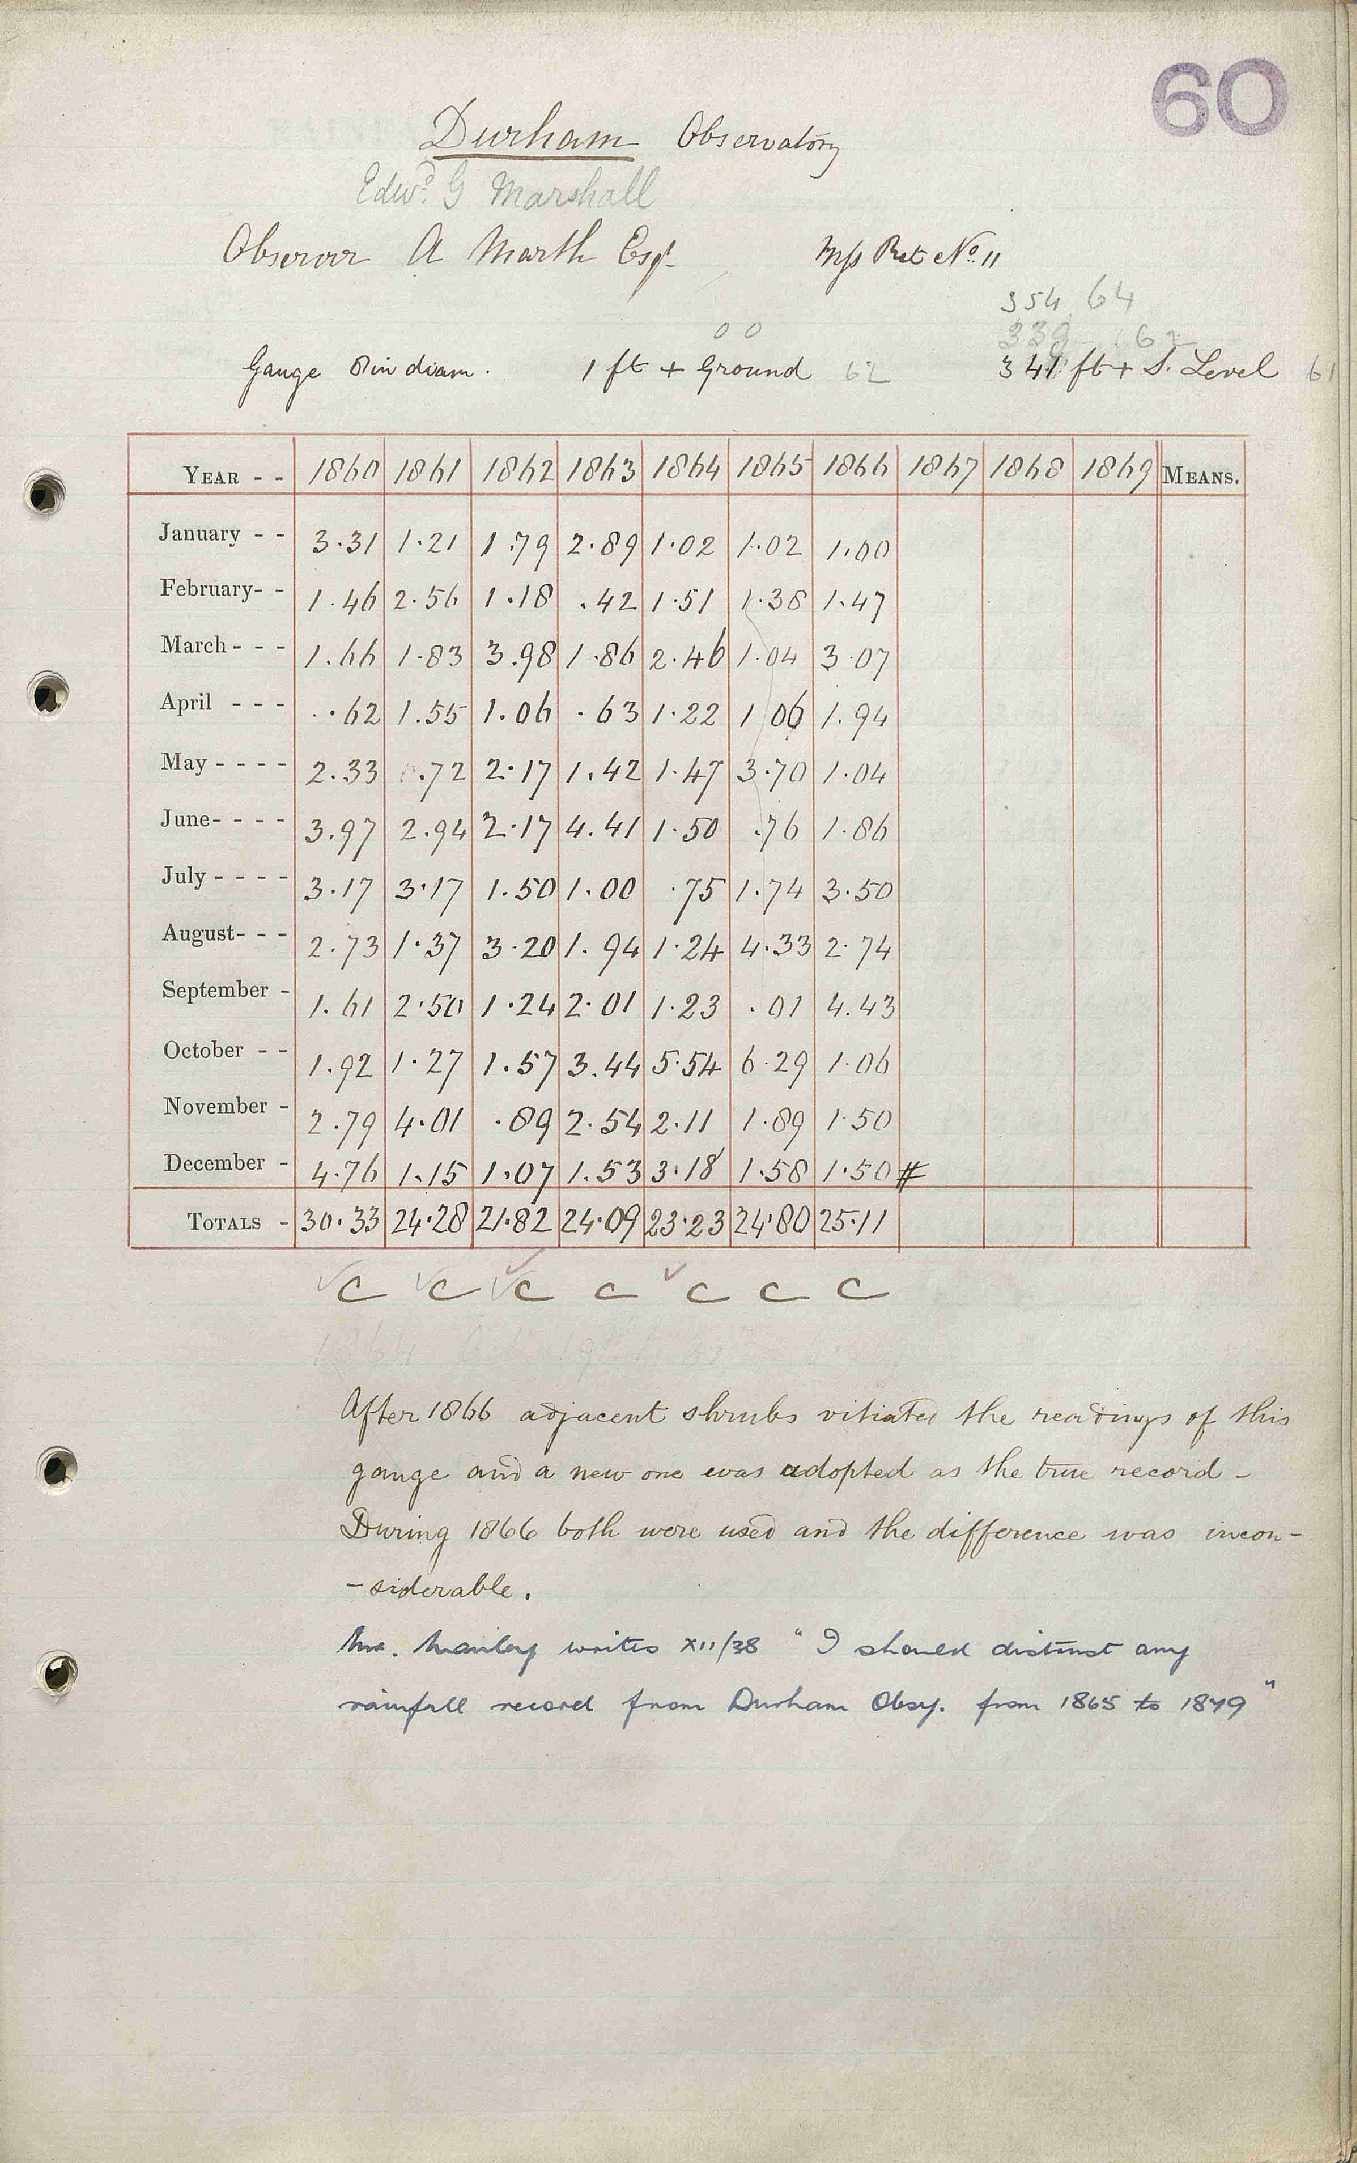 60
Durham Observatory
Edwd. G Marshall
Observer A Marth Esqr. Mss Ret No. 11
354 64
339 62
00
Gauge 8 in diam. 1 ft + Ground 62 341 ft + S. Level 61
YEAR - - 1860 1861 1862 1863 1864 1865 1866 1867 1868 1869 MEANS.
January - - 3.31 1.21 1.79 2.89 1.02 1.02 1.00
February- - 1.46 2.56 1.18 .42 1.51 1.38 1.47
March - - - 1.66 1.83 3.98 1.86 2.46 1.04 3.07
April - - - .62 1.55 1.06 .63 1.22 1.06 1.94
May - - - - 2.33 0.72 2.17 1.42 1.47 3.70 1.04
June- - - - 3.97 2.94 2.17 4.41 1.50 .76 1.86
July - - - - 3.17 3.17 1.50 1.00 .75 1.74 3.50
August- - - 2.73 1.37 3.20 1.94 1.24 4.33 2.74
September - 1.61 2.50 1.24 2.01 1.23 .01 4.43
October - - 1.92 1.27 1.57 3.44 5.54 6.29 1.06
November - 2.79 4.01 .89 2.54 2.11 1.89 1.50
December - 4.76 1.15 1.07 1.53 3.18 1.58 1.50 #
TOTALS - 30.33 24.28 21.82 24.09 23.23 24.80 25.11
C C C C C C C
1864
After 1866 adjacent shrubs vitiated the readings of this
gauge and a new one was adopted as the true record -
During 1866 both were used and the difference was incon-
-siderable.
Mr. Manley writes XII/38 "I should distrust any
rainfall record from Durham Obsy. from 1865 to 1879"